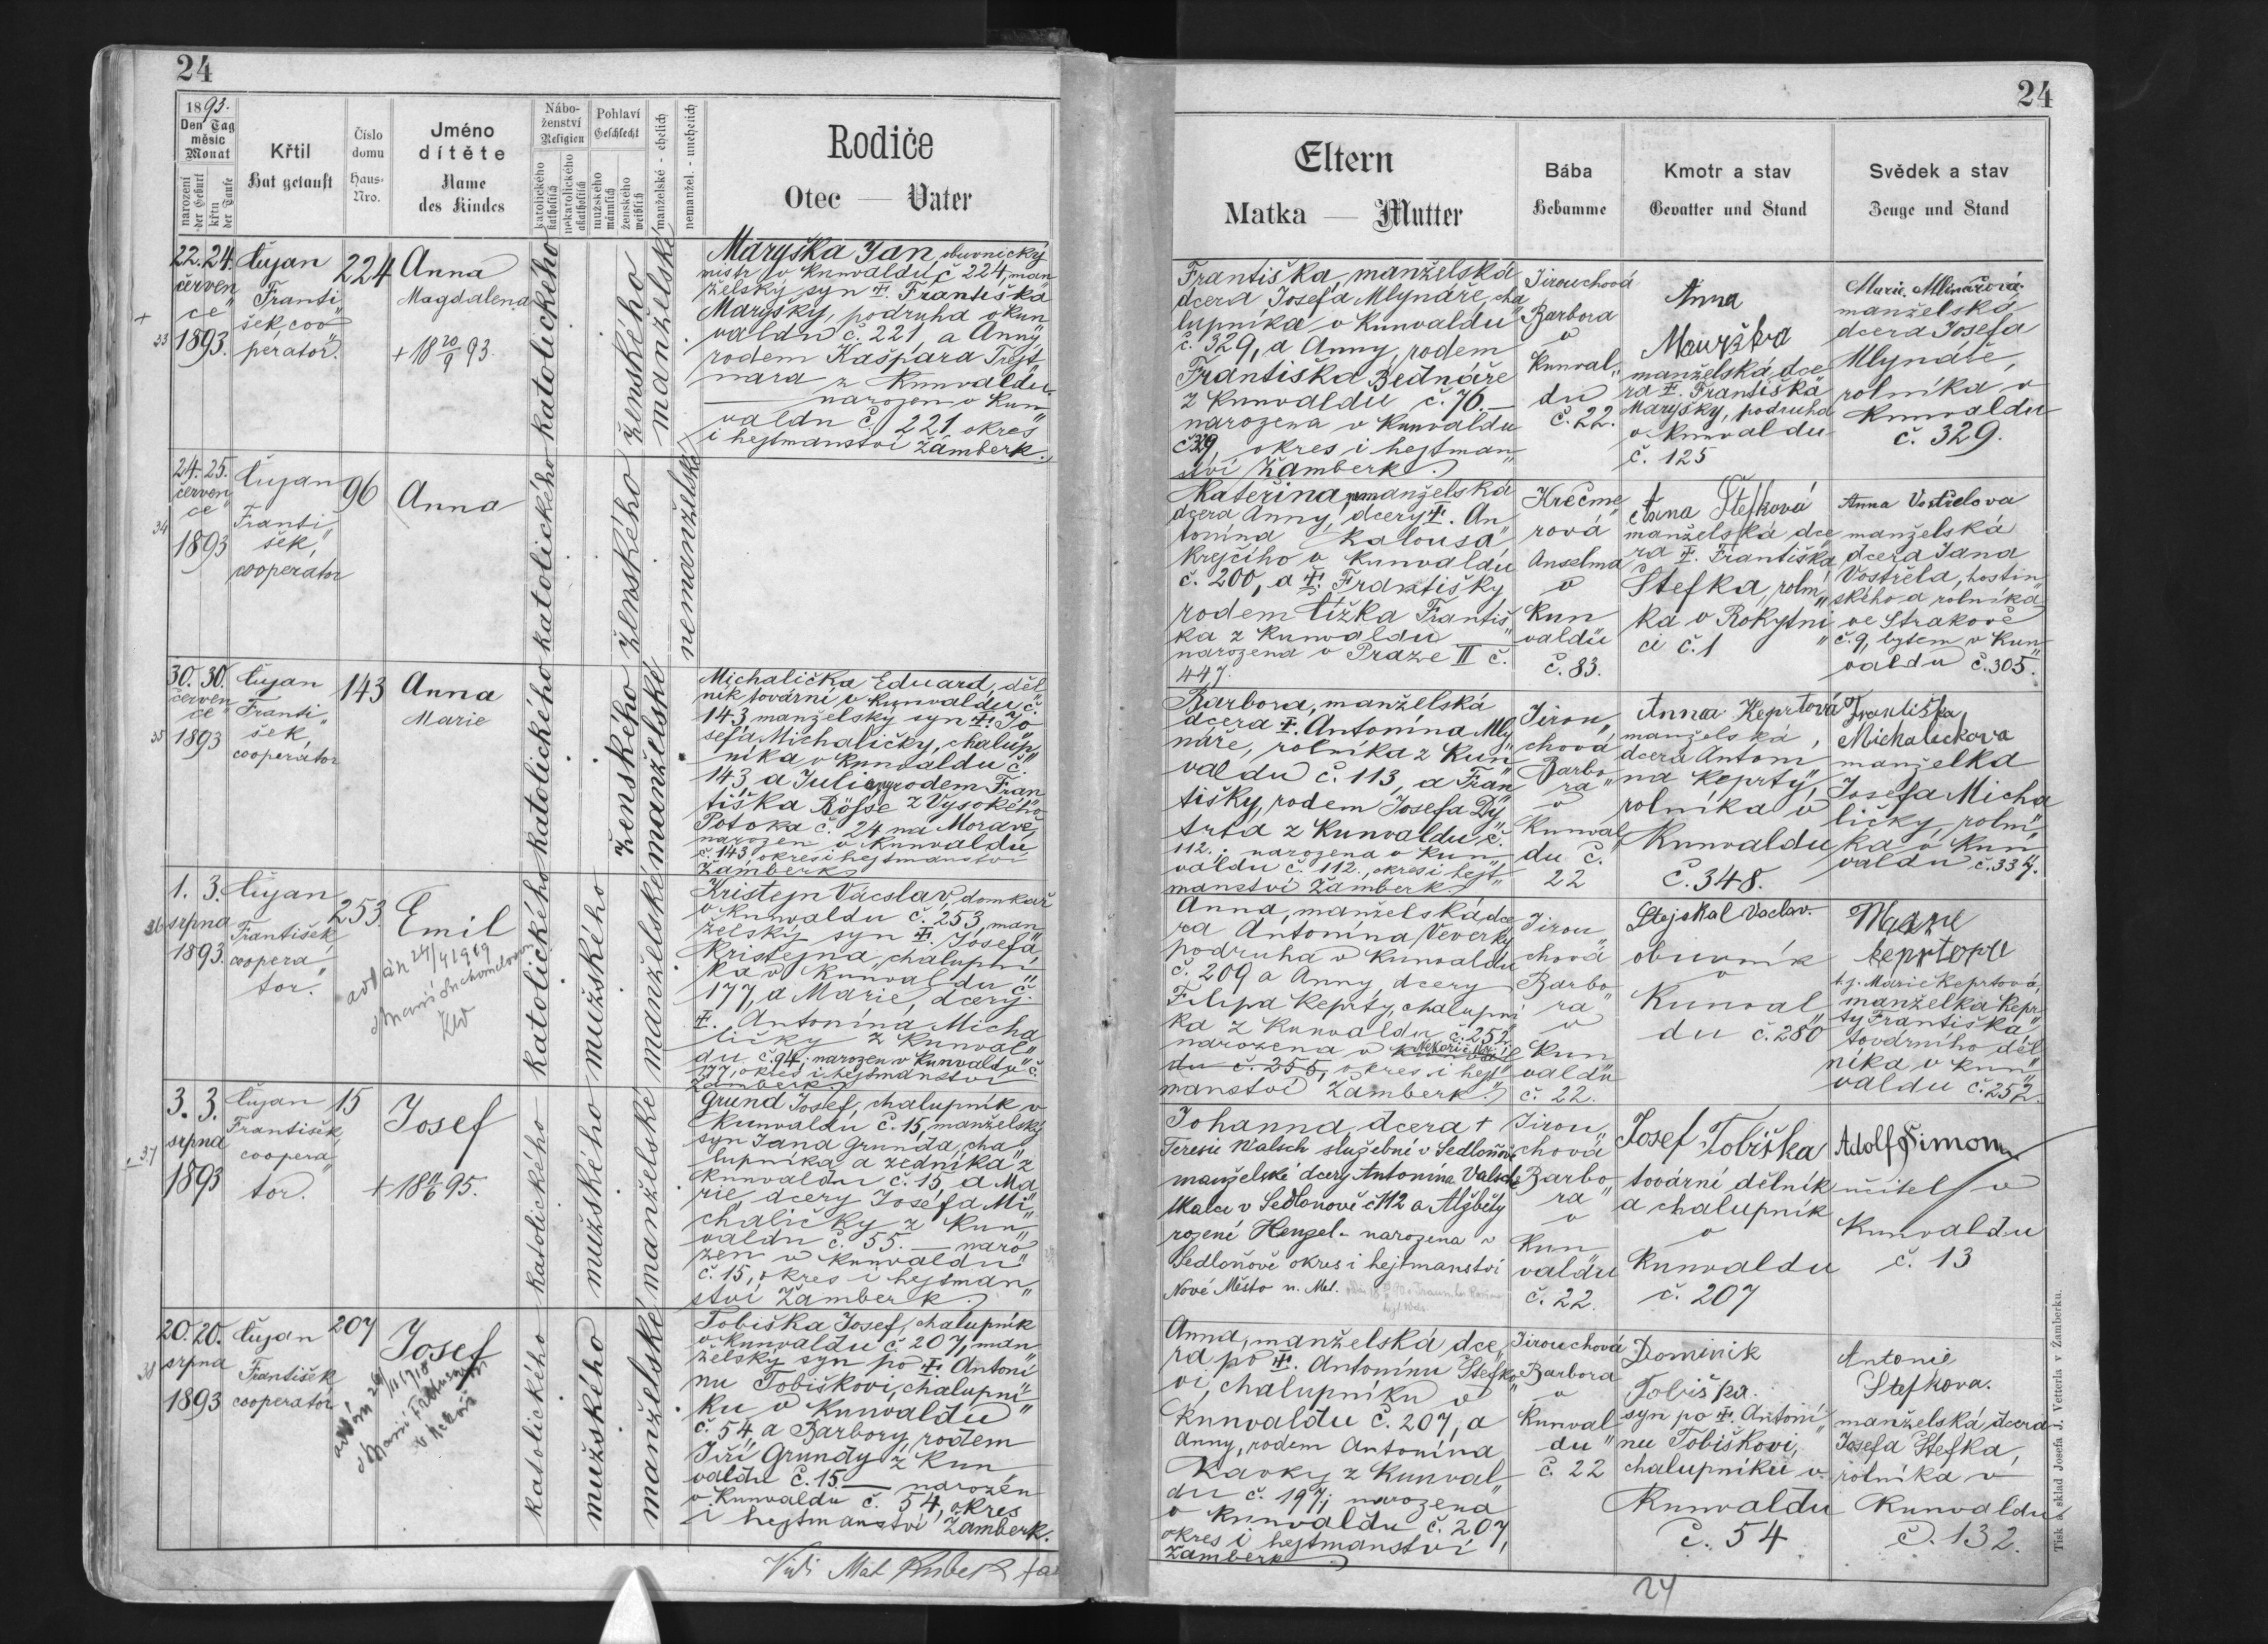 24
1893.
Den Tag
měsíc
Monat
narození
der Geburt
křtu
der Taufe
Křtil
Hat getauft
Číslo
domu
Haus-
Nro.
Jméno
dítěte
Name
des Kindes
Nábo-
ženství
Religion
katolického
katholisch
nekatolického
akatholisch
Pohlaví
Geschlecht
mužského
männlich
ženského
weiblich
manželské - ehelich
nemanžel. - unehelich
Rodiče
Otec — Vater
22. 24.
červen
ce
1893.
23
Čujan
Franti
šek, coo
perator.
224
Anna
Magdalena
+ 18 20/9 93.
katolického
ženského
manželské
Maryška Jan, obuvnický
mistr v Kunvaldu č 224, man
želský syn †. Františka
Maryšky, podruha v Kun
valdu č. 221 a Anny,
rodem Kašpara Trejt
nara z Kunvaldu
narozen v Kun
valdu č. 221 okres
i hejtmanství Žamberk.
24. 25.
červen
ce
1893
34
Čujan
Franti
šek,
cooperátor
96
Anna
katolického
ženského
nemanželské
30. 30.
červen
ce
1893
35
Čujan
Franti
šek,
cooperátor
143
Anna
Marie
katolického
ženského
manželské
Michalička Eduard, děl
ník tovární v Kunvaldu č.
143 manželský syn †. Jo
sefa Michaličky, chalup
níka v Kunvaldu č.
143 a Julie, rodem Fran
tiška Rösse z Vysokého
Potoka č. 24 na Moravě,
narozen v Kunvaldu
č. 143 okres i hejtmanství
Žamberk
1. 3.
srpna
1893.
36
Čujan
František
coopera
tor.
253.
Emil
oddán 24/4 1919
s Marií
katolického
mužského
manželské
Kristejn Václav, domkář
v Kunvaldu č. 253, man
želský syn †. Josefa
Kristejna, chalupní
ka v Kunvaldu č.
177, a Marie, dcery
†. Antonína Micha
ličky z Kunval
du č. 94. narozen v Kunvaldu č.
177, okres i hejtmanství
Žamberk
3. 3.
srpna
1893
37
Čujan
František,
coopera
tor.
15
Josef
katolického
mužského
manželské
Grund Josef, chalupník v
Kunvaldu č. 15, manželský
syn Jana Grunda, cha
lupníka a zedníka z
Kunvaldu č. 15 a Ma
rie, dcery Josefa Mi
chaličky z Kun
valdu č. 55. — naro
zen v Kunvaldu
č. 15, okres i hejtman
ství Žamberk.
20. 20.
srpna
1893
38
Čujan
František
cooperátor
207
Josef
katolického
mužského
manželské
Tobiška Josef, chalupník
v Kunvaldu č. 207, man
želský syn po †. Antoní
nu Tobiškovi, chalupní
ku v Kunvaldu
č. 54, a Barbory, rodem
Jiří Grundy z Kun
valdu č. 15. — narozen
v Kunvaldu č. 54, okres
i hejtmanství Žamberk.
24
Eltern
Matka — Mutter
Bába
Hebamme
Kmotr a stav
Gevatter und Stand
Svědek a stav
Zeuge und Stand
Františka, manželská
dcera Josefa Mlynáře, cha
lupníka v Kunvaldu
č. 329, a Anny, rodem
Františka Bednáře
z Kunvaldu č. 76. —
narozena v Kunvaldu
č. 329, okres i hejtman
ství Žamberk.
Jirouchová
Barbora
v
Kunval
du
č. 22.
Anna
Maryška
manželská dce
ra †. Františka
Maryšky, podruha
v Kunvaldu
č. 125
Marie Mlinařová
manželská
dcera Josefa
Mlynáře,
rolníka v
Kunvaldu
č. 329.
Kateřina, manželská
dcera Anny, dcery †. An
tonína Kalousa
krejčího v Kunvaldu
č. 200, a †. Františky
rodem Čížka Františ
ka z Kunvaldu —
narozena v Praze II č.
447.
Krečme
rová
Anselma
v
Kun
valdu
č. 83.
Anna Štefková
manželská dce
ra †. Františka
Štefka, rolní
ka v Rokytni
ci č. 1
Anna Vostřelova
manželská
dcera Jana
Vostřela, hostin
ského a rolníka
ve Strakově
č. 9, bytem v Kun
valdu č. 305.
Barbora, manželská
dcera †. Antonína Mly
náře, rolníka z Kun
valdu č. 113, a Fran
tišky, rodem Josefa Dy
trta z Kunvaldu č.
112.; narozena v Kun
valdu č. 112., okres i hejt
manství Žamberk.
Jirou
chová
Barbo
ra
v
Kunval
du č.
22
Anna Keprtová
manželská,
dcera Anton
na Keprty,
rolníka v
Kunvaldu
č. 348.
Františka
Michalickova
manželka
Josefa Micha
ličky, rolní
ka v Kun
valdu č. 334.
Anna, manželská dce
ra Antonína Veverky
podruha v Kunvaldu
č. 209 a Anny, dcery
Filipa Keprty, chalupní
ka z Kunvaldu č. 252
narozena v Kunval
du č. 255, okres i hejt
manství Žamberk.
Jirou
chová
Barbo
ra
v
Kun
valdu
č. 22.
Stejskal Vaclav.
obuvník
v
Kunval
du č. 280
Marie
Keprtova
t. j. Marie Keprtová,
manželka Kepr
ty Františka
továrního děl
níka v Kun
valdu č. 252.
Johanna dcera †
Teresie Walsch služebné v Sedloňově
manželské dcery Antonína Valsche
tkalce v Sedloňově č 112 a Alžběty
rozené Henzel - narozena v
Sedloňově okres i hejtmanství
Nové Město n. Met.
Jirou
chová
Barbo
ra
v
Kun
valdu
č. 22.
Josef Tobiška
tovární dělník
a chalupník
v
Kunvaldu
č. 207
Adolf Šimon
učitel v
Kunvaldu
č. 13
Anna, manželská dce
ra po †. Antonínu Štefko
vi, chalupníku v
Kunvaldu č. 207, a
Anny, rodem Antonína
Kavky z Kunval
du č. 197; narozena
v Kunvaldu č. 207,
okres i hejtmanství
Žamberk
Jirouchová
Barbora
v
Kunval
du
č. 22
Dominik
Tobiška.
syn po †. Antoní
nu Tobiškovi,
chalupníku v
Kunvaldu
č. 54
Antonie
Stefkova.
manželská dcera
Josefa Štefka,
rolníka v
Kunvaldu
č. 132.
24
Tisk a sklad Josefa J. Vetterla v Žamberku.